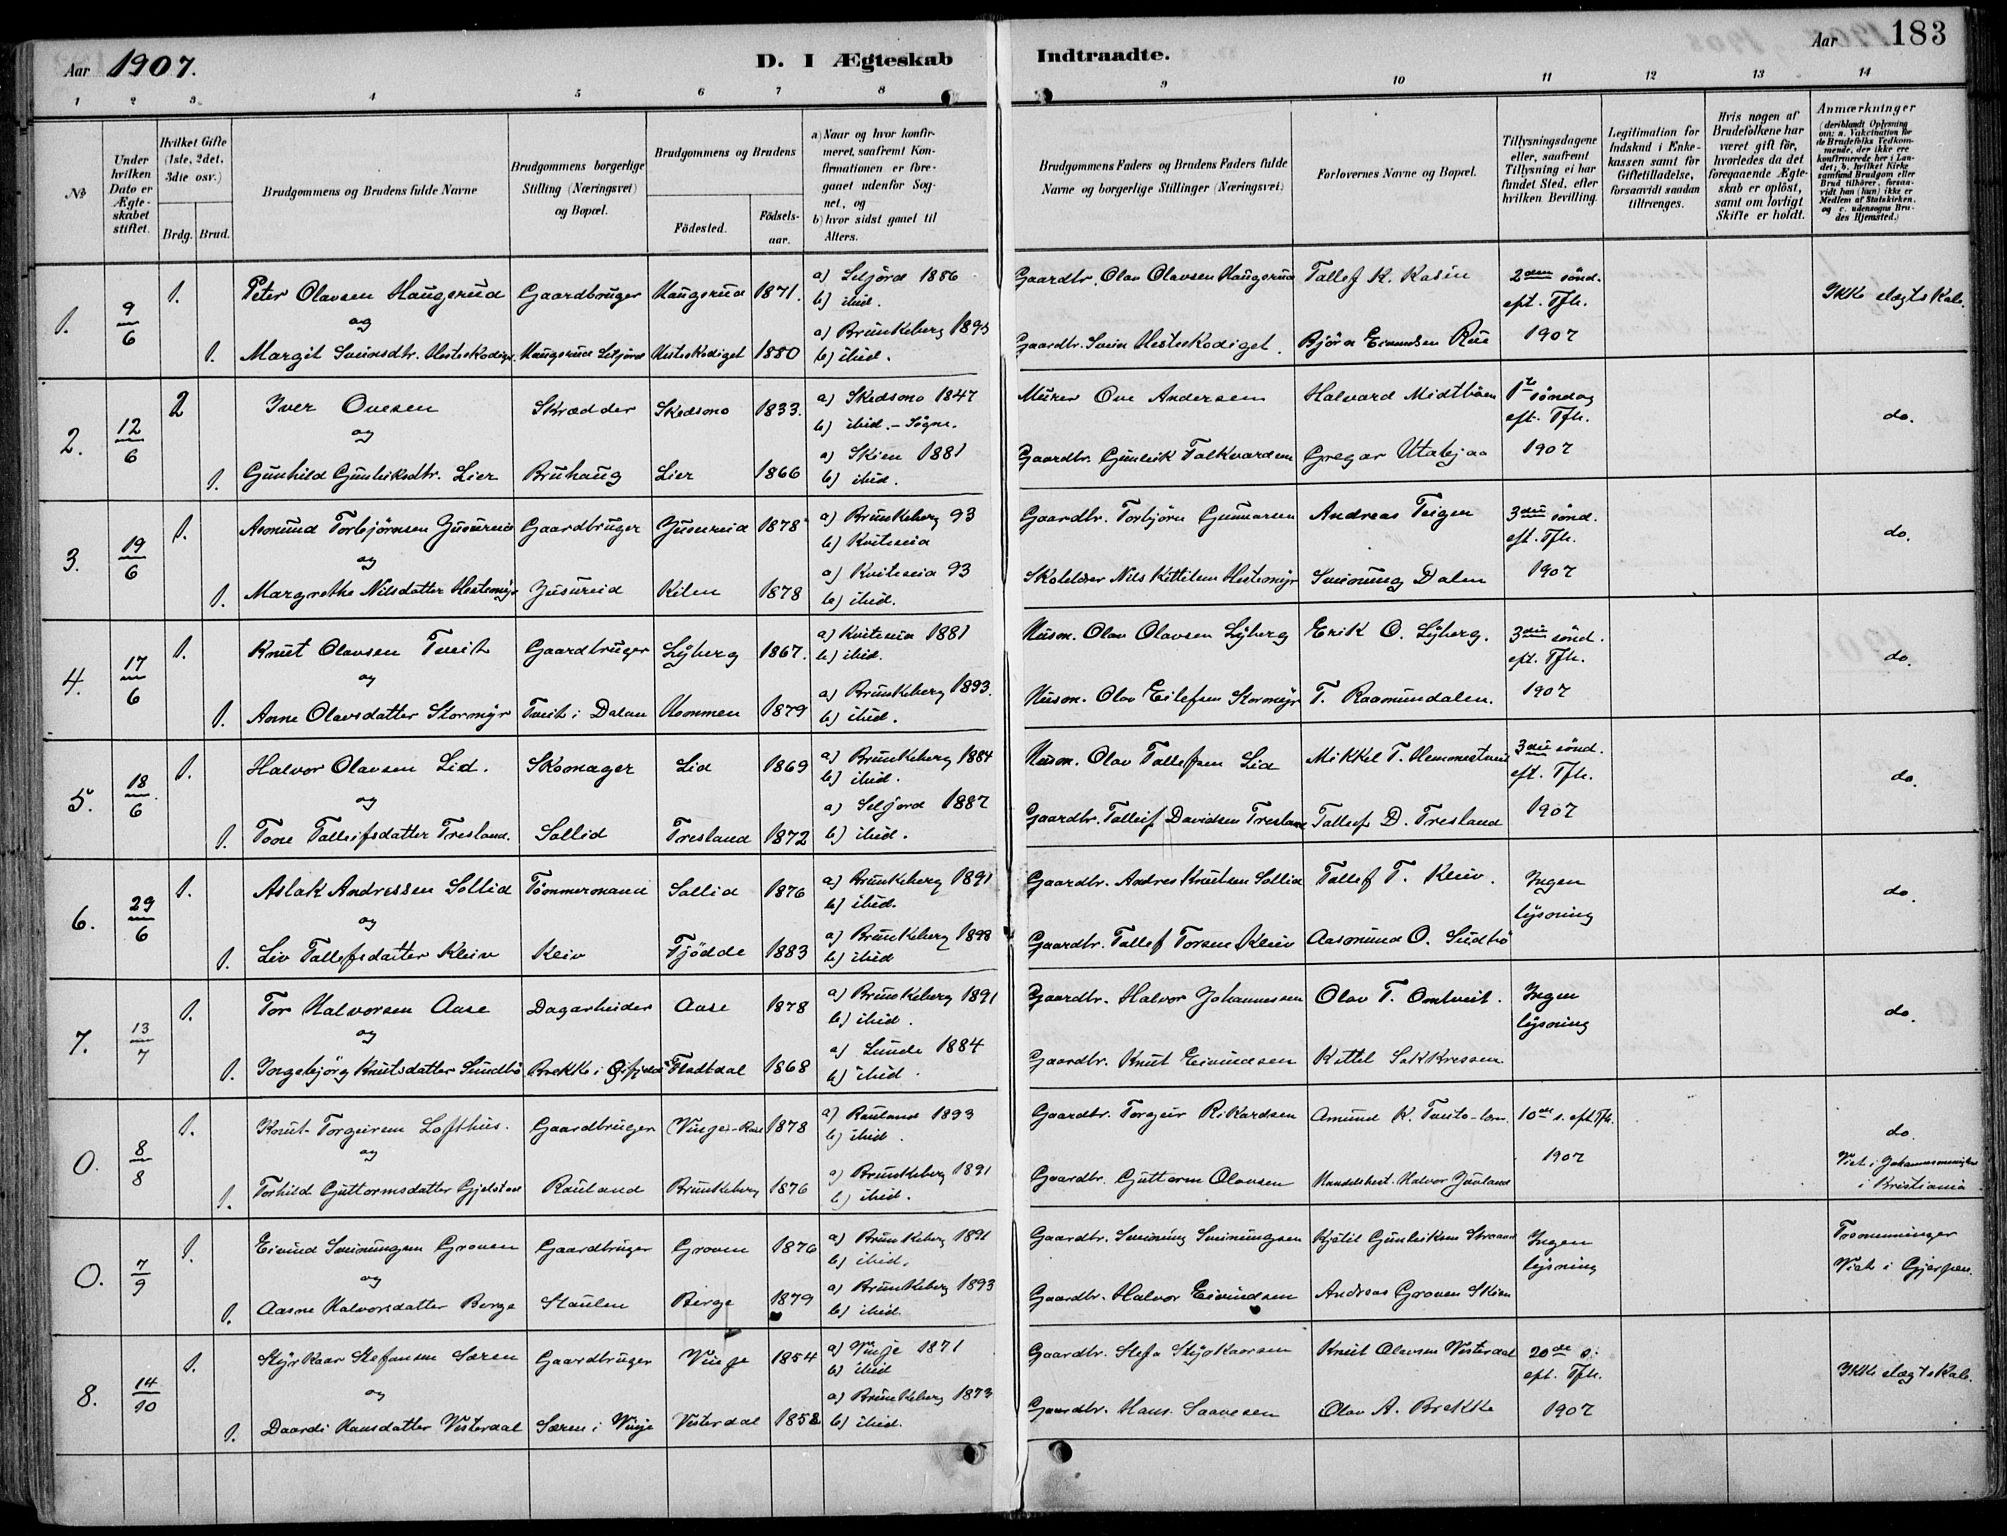 Aar 1907.
D. I Ægteskab Indtraadte.
Aar 183
1 2 3 4 5 6 7 8 9 10 11 12 13 14
No
Under hvilken Dato er Ægteskabet stiftet.
Hvilket Gifte (1ste, 2det, 3die osv.)
Brdg. Brud.
Brudgommens og Brudens fulde Navne
Brudgommens borgerlige Stilling (Næringsvei) og Bopæl.
Brudgommens og Brudens
Födested.
Födselsaar.
a) Naar og hvor konfirmeret, saafremt Konfirmationen er foregaaet udenfor Sognet, og
b) hvor sidst gaaet til Alters.
Brudgommens Faders og Brudens Faders fulde Navne og borgerlige Stillinger (Næringsvei)
Forlovernes Navne og Bopæl.
Tillysningsdagene eller, saafremt Tillysning ei har fundet Sted, efter hvilken Bevilling.
Legitimation for Indskud i Enkekassen samt for Giftetilladelse, forsaavidt saadan tiltrænges.
Hvis nogen af Brudefolkene har været gift för, hvorledes da det foregaaende Ægteskab er oplöst, samt om lovligt Skifte er holdt.
Anmærkninger
(deriblandt Oplysning om: a. Vakcination for de Brudefolks Vedkommende, der ikke ere konfirmerede her i Landet; b. hvilket Kirkesamfund Brudgom eller Brud tilhörer, forsaavidt han (hun) ikke er Medlem af Statskirken, og c. udensogns Brudes Hjemsted.)
1. 9/6 1. Peter Olavsen Haugerud Gaardbruger Haugerud 1871. a) Seljord 1886 b) ibid. Gaardbr. Olav Olavsen Haugerud Tallef K. Kasin 2den sönd. eft. Tfh. 1907 Ikke slegtskab.
og
1. Margit Sveinsdtr. Hesteskodiget Haugerud Seljord Hesteskodiget 1880 a) Brunkeberg 1895 b) ibid. Gaardbr. Svein Hesteskodiget. Björn Eivindsen Rue
2. 12/6 2 Iver Ovesen Skrædder Skedsmo 1833. a) Skedsmo 1847 b) ibid. - Sogne. Murer Ove Andersen Halvard Midtbøen 1te söndag eft. Tfh. 1907 do.
og
1. Gunhild Gunleiksdtr. Lier Bruhaug Lier 1866 a) Skien 1881 b) ibid. Gaardbr. Gunleik Gregar Utabjaa
3. 19/6 1. Asmund Torbjørnsen Jusureid Gaardbruger Jusureid 1878 a) Brunkeberg 93 b) Kviteseia Gaardbr. Torbjørn Gunnarsen Andreas Teigen 3die sönd. eft. Tfh. 1907 do.
og
1. Margrethe Nilsdatter Hestemyr Jusureid Kilen 1878 a) Kviteseia 93 b) ibid. Skolelærer Nils Kittilsen Hestemyr Sveinung Dalen
4. 17/6 1. Knut Olavsen Tveit Gaardbruger Lyberg 1867. a) Kviteseia 1881 b) ibid. Husm. Olav Olavsen Lyberg Erik O. Lyberg. 3die sönd. eft. Tfh. 1907 do.
og
1. Anne Olavsdatter Stormyr Tveit i Dalan Hommen 1879 a) Brunkeberg 1893. b) ibid. Husm. Olav Eilefsen Stormyr T. Raamundalen.
5. 18/6 1. Halvor Olavsen Lid. Skomager Lid 1869 a) Brunkeberg 1884 b) ibid. Husm. Olav Tallefsen Lid Mikkel T. Hemmestveit 3die sönd. eft. Tfh. 1907 do.
og
1. Tone Talleifsdatter Tresland. Sollid Tresland 1872 a) Seljord 1887 b) ibid. Gaardbr. Talleif Davidsen Tresland Tallef D. Tresland
6. 29/6 1. Aslak Andressen Sollid Tömmermand Sollid 1876 a) Brunkeberg 1891 b) ibid. Gaardbr. Andres Knutsen Sollid Tallef T. Kleiv. Ingen lysning do.
og
1. Liv Tallefsdatter Kleiv Kleiv Fjödde 1883 a) Brunkeberg 1898 b) ibid Gaardbr. Tallef Torsen Kleiv Aasmund O. Sudbö
7. 13/7 1. Tor Halvorsen Aase Dagarbeider Aase 1878 a) Brunkeberg 1891 b) ibid. Gaardbr. Halvor Johannessen Olav T. Omtveit. Ingen lysning do.
og
1. Ingebjörg Knutsdatter Sundbö Brekke i Fladtdal 1868 a) Lunde 1884 b) ibid. Gaardbr. Knut Eivindsen Kittel Sakkressen
0. 8/8 1. Knut Torgeirsen Lofthus. Gaardbruger Vinje 1878 a) Rauland 1893 b) ibid. Gaardbr. Torgeir Rikardsen Amund K. 10de s. eft. Tfh. 1907 do. Viet i i Kristiania
og
1. Torhild Guttormsdatter Rauland Brunkeberg 1876 a) Brunkeberg 1891 b) ibid. Gaardbr. Guttorm Olavsen Handelsbest. Halvor Juvland
0. 7/9 1. Eivind Sveinungsen Groven Gaardbruger Groven 1876 a) Brunkeberg 1891 b) ibid. Gaardbr. Sveinung Sveinungsen Kjetil Gunleiksen Straand Ingen lysning Tremminger Viet i Gjerpen.
og
1. Aasne Halvorsdatter Berge Staulen Berge 1879 a) Brunkeberg 1893 b) ibid. Gaardbr. Halvor Eivindsen Andreas Groven Skien
8. 14/10 1. Styrkaar Stefansen Særen Gaardbruger Vinje 1854 a) Vinje 1871 b) ibid Gaardbr. Stefa Styrkaarsen Knut Olavsen Vesterdal 20de s. eft. Tfh. 1907 Ikke slegtskab.
og
1. Daardi Hansdatter Vesterdal Særen i Vinje Vesterdal 1858 a) Brunkeberg 1873 b) ibid. Gaardbr. Hans Saavesen Olav A. Brekke